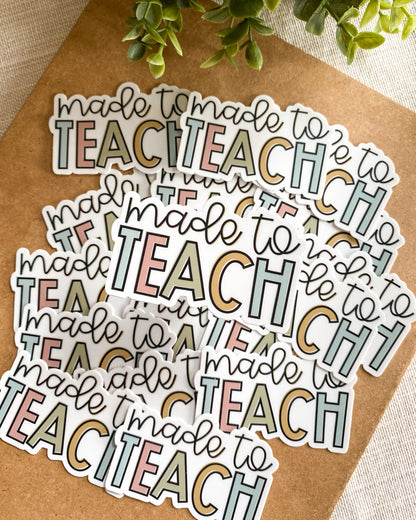 made to
TEACH
made to
TEACH
made to
TEACH
made to
TEACH
made to
TEACH
made to
TEACH
made to
TEACH
made to
TEACH
made to
TEACH